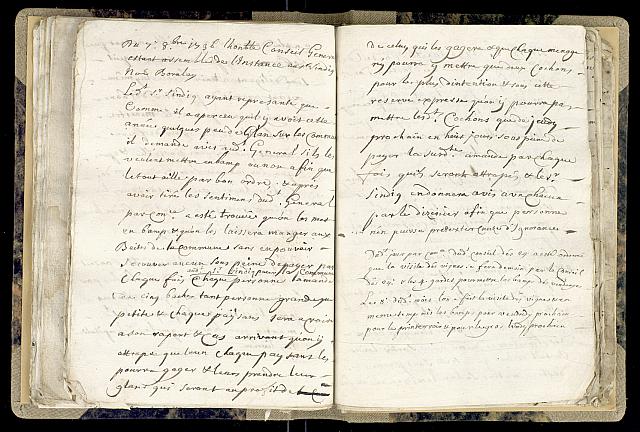 Du 7e 8bre 1736 l'honble Conseil General
estant assemblé de l'Instance de Sr Sindiq
Le dt Sr Sindiq ayant representé que
Comme il a aperceu qu'il y avoit cette
année quelque peu de glan sur les Communes
il demande avis aud. General s'ils les
veulent mettre en bamp ou non afin que
le tout aille par bon ordre, & apres
avoir tiré les sentiments dud. General
par Come a esté trouvé qu'on les met
en bamp & qu'on les laissera manger aux
Bestes de la Commune sans en pouvoir
sous peine de payer par
Chaque fois Chaque personne l'amande
de cinq baches tant personne grande que
petite & chaque païsans sera a croire
a son raport & Cas arrivant qu'on y
attrape quelcun chaque paysans les
pourra gager & leurs prendre leur
glans qui seront au profit de
de celuy qui les gagera & que chaque menage
n'y pourra y mettre que deux Cochons
pour le plus d'intention & sous cette
reserve expresse qu'on n'y pourra pas
mettre les dt Cochons que de jeudy
prochain en huit jours sous peine de
payer la surdte amande par chaque
fois qu'ils seront attrapés & le Sr
Sindiq en donnera avis a un chacun
par le dizenier afin que personne
n'en puisse pretexter Cause d'Ignorance
Dud. jour par Come dud. Conseil
que la visite du vignes se fera demain par le Conseil
Le 8e dud. mois l'on a fait la visite du vignes & en
mesme temps mis les bamps pour vendredy prochain
pour les printannier & pour le gros lundy prochain